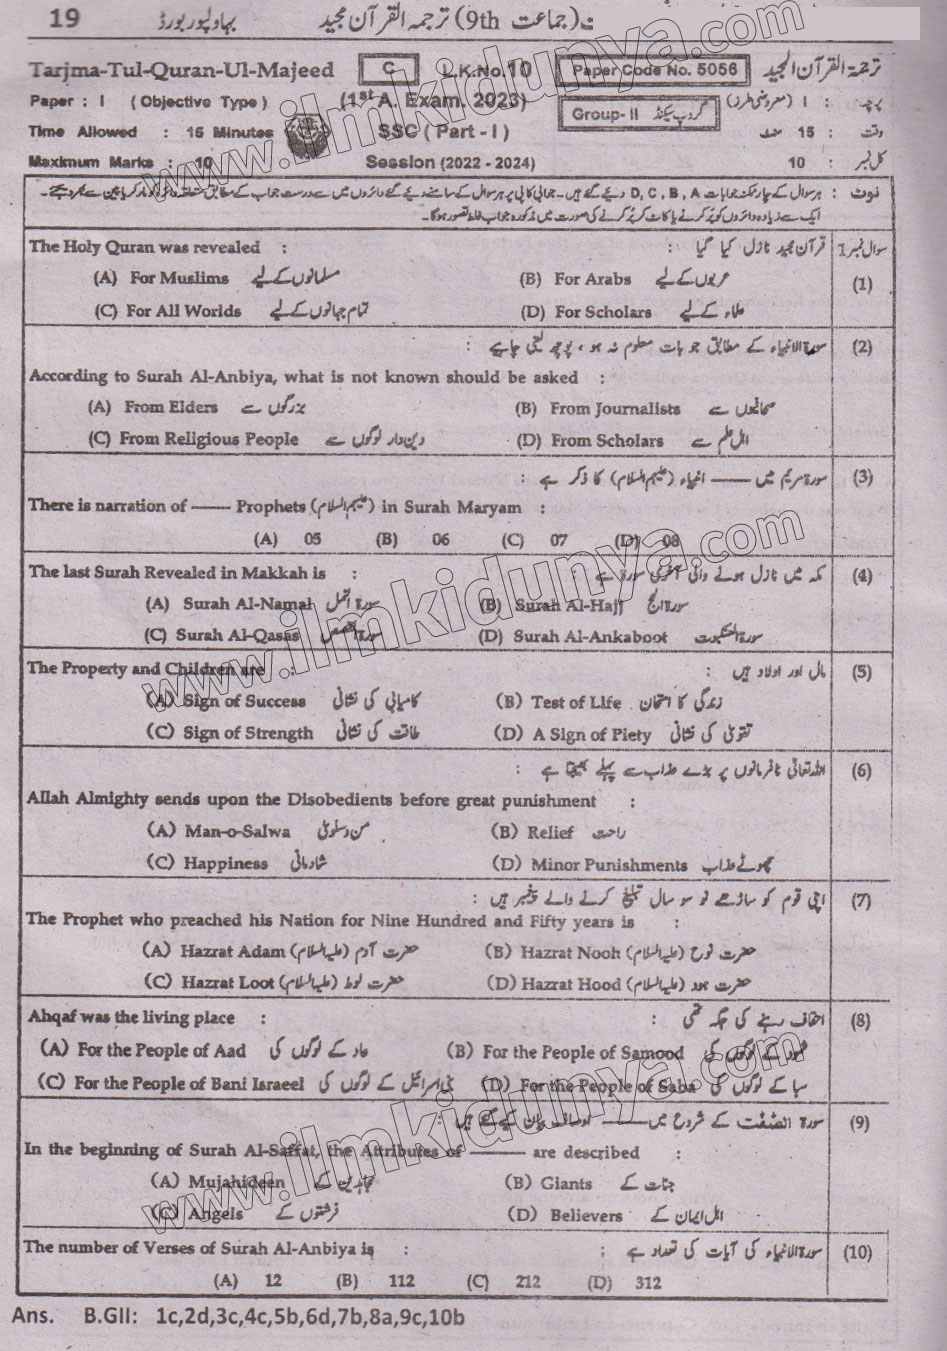 19 بہاولپور بورڈ ترجمہ القرآن مجید (جماعت 9th)
Tarjma-Tul-Quran-Ul-Majeed C L.K.No.10 Paper Code No. 5056 ترجمۃ القرآن المجید
Paper : I ( Objective Type ) (1st A. Exam. 2023) پرچہ : I (معروضی طرز)
Time Allowed : 15 Minutes SSC ( Part - I ) Group- II گروپ سیکنڈ وقت : 15 منٹ
Maximum Marks : 10 Session (2022 - 2024) کل نمبر : 10
نوٹ : ہر سوال کے چار ممکنہ جوابات D, C, B, A دیئے گئے ہیں۔ جوابی کاپی پر ہر سوال کے سامنے دیئے گئے دائروں میں سے درست جواب کے مطابق متعلقہ دائرہ کو مارکر یا پین سے بھر دیجئے۔
ایک سے زیادہ دائروں کو پُر کرنے یا کاٹ کر پُر کرنے کی صورت میں مذکورہ جواب غلط تصور ہوگا۔
The Holy Quran was revealed : قرآن مجید نازل کیا گیا : سوال نمبر 1
(A) For Muslims مسلمانوں کے لیے (B) For Arabs عربوں کے لیے (1)
(C) For All Worlds تمام جہانوں کے لیے (D) For Scholars علماء کے لیے
(2) سورۃ الانبیاء کے مطابق جو بات معلوم نہ ہو ، پوچھ لینی چاہیے :
According to Surah Al-Anbiya, what is not known should be asked :
(A) From Elders بزرگوں سے (B) From Journalists صحافیوں سے
(C) From Religious People دین دار لوگوں سے (D) From Scholars اہل علم سے
(3) سورۃ مریم میں ــــــ انبیاء (علیہم السلام) کا ذکر ہے :
There is narration of —— Prophets (علیہم السلام) in Surah Maryam :
(A) 05 (B) 06 (C) 07 (D) 08
The last Surah Revealed in Makkah is : مکہ میں نازل ہونے والی آخری سورۃ ہے : (4)
(A) Surah Al-Namal سورۃ النمل (B) Surah Al-Hajj سورۃ الحج
(C) Surah Al-Qasas سورۃ القصص (D) Surah Al-Ankaboot سورۃ العنکبوت
The Property and Children are : مال اور اولاد ہیں : (5)
(A) Sign of Success کامیابی کی نشانی (B) Test of Life زندگی کا امتحان
(C) Sign of Strength طاقت کی نشانی (D) A Sign of Piety تقویٰ کی نشانی
(6) اللہ تعالیٰ نافرمانوں پر بڑے عذاب سے پہلے بھیجتا ہے :
Allah Almighty sends upon the Disobedients before great punishment :
(A) Man-o-Salwa من و سلویٰ (B) Relief راحت
(C) Happiness شادمانی (D) Minor Punishments چھوٹے عذاب
(7) اپنی قوم کو ساڑھے نو سو سال تبلیغ کرنے والے پیغمبر ہیں :
The Prophet who preached his Nation for Nine Hundred and Fifty years is :
(A) Hazrat Adam حضرت آدم (علیہ السلام) (B) Hazrat Nooh حضرت نوح (علیہ السلام)
(C) Hazrat Loot حضرت لوط (علیہ السلام) (D) Hazrat Hood حضرت ہود (علیہ السلام)
Ahqaf was the living place : احقاف رہنے کی جگہ تھی : (8)
(A) For the People of Aad عاد کے لوگوں کی (B) For the People of Samood ثمود کے لوگوں کی
(C) For the People of Bani Israeel بنی اسرائیل کے لوگوں کی (D) For the People of Saba سبا کے لوگوں کی
(9) سورۃ الصّٰفّٰت کے شروع میں ــــــ اوصاف بیان کیے گئے ہیں :
In the beginning of Surah Al-Saffat, the Attributes of ——— are described :
(A) Mujahideen مجاہدین کے (B) Giants جنات کے
(C) Angels فرشتوں کے (D) Believers اہل ایمان کے
The number of Verses of Surah Al-Anbiya is : سورۃ الانبیاء کی آیات کی تعداد ہے : (10)
(A) 12 (B) 112 (C) 212 (D) 312
Ans. B.GII: 1c,2d,3c,4c,5b,6d,7b,8a,9c,10b
www.ilmkidunya.com
www.ilmkidunya.com
www.ilmkidunya.com